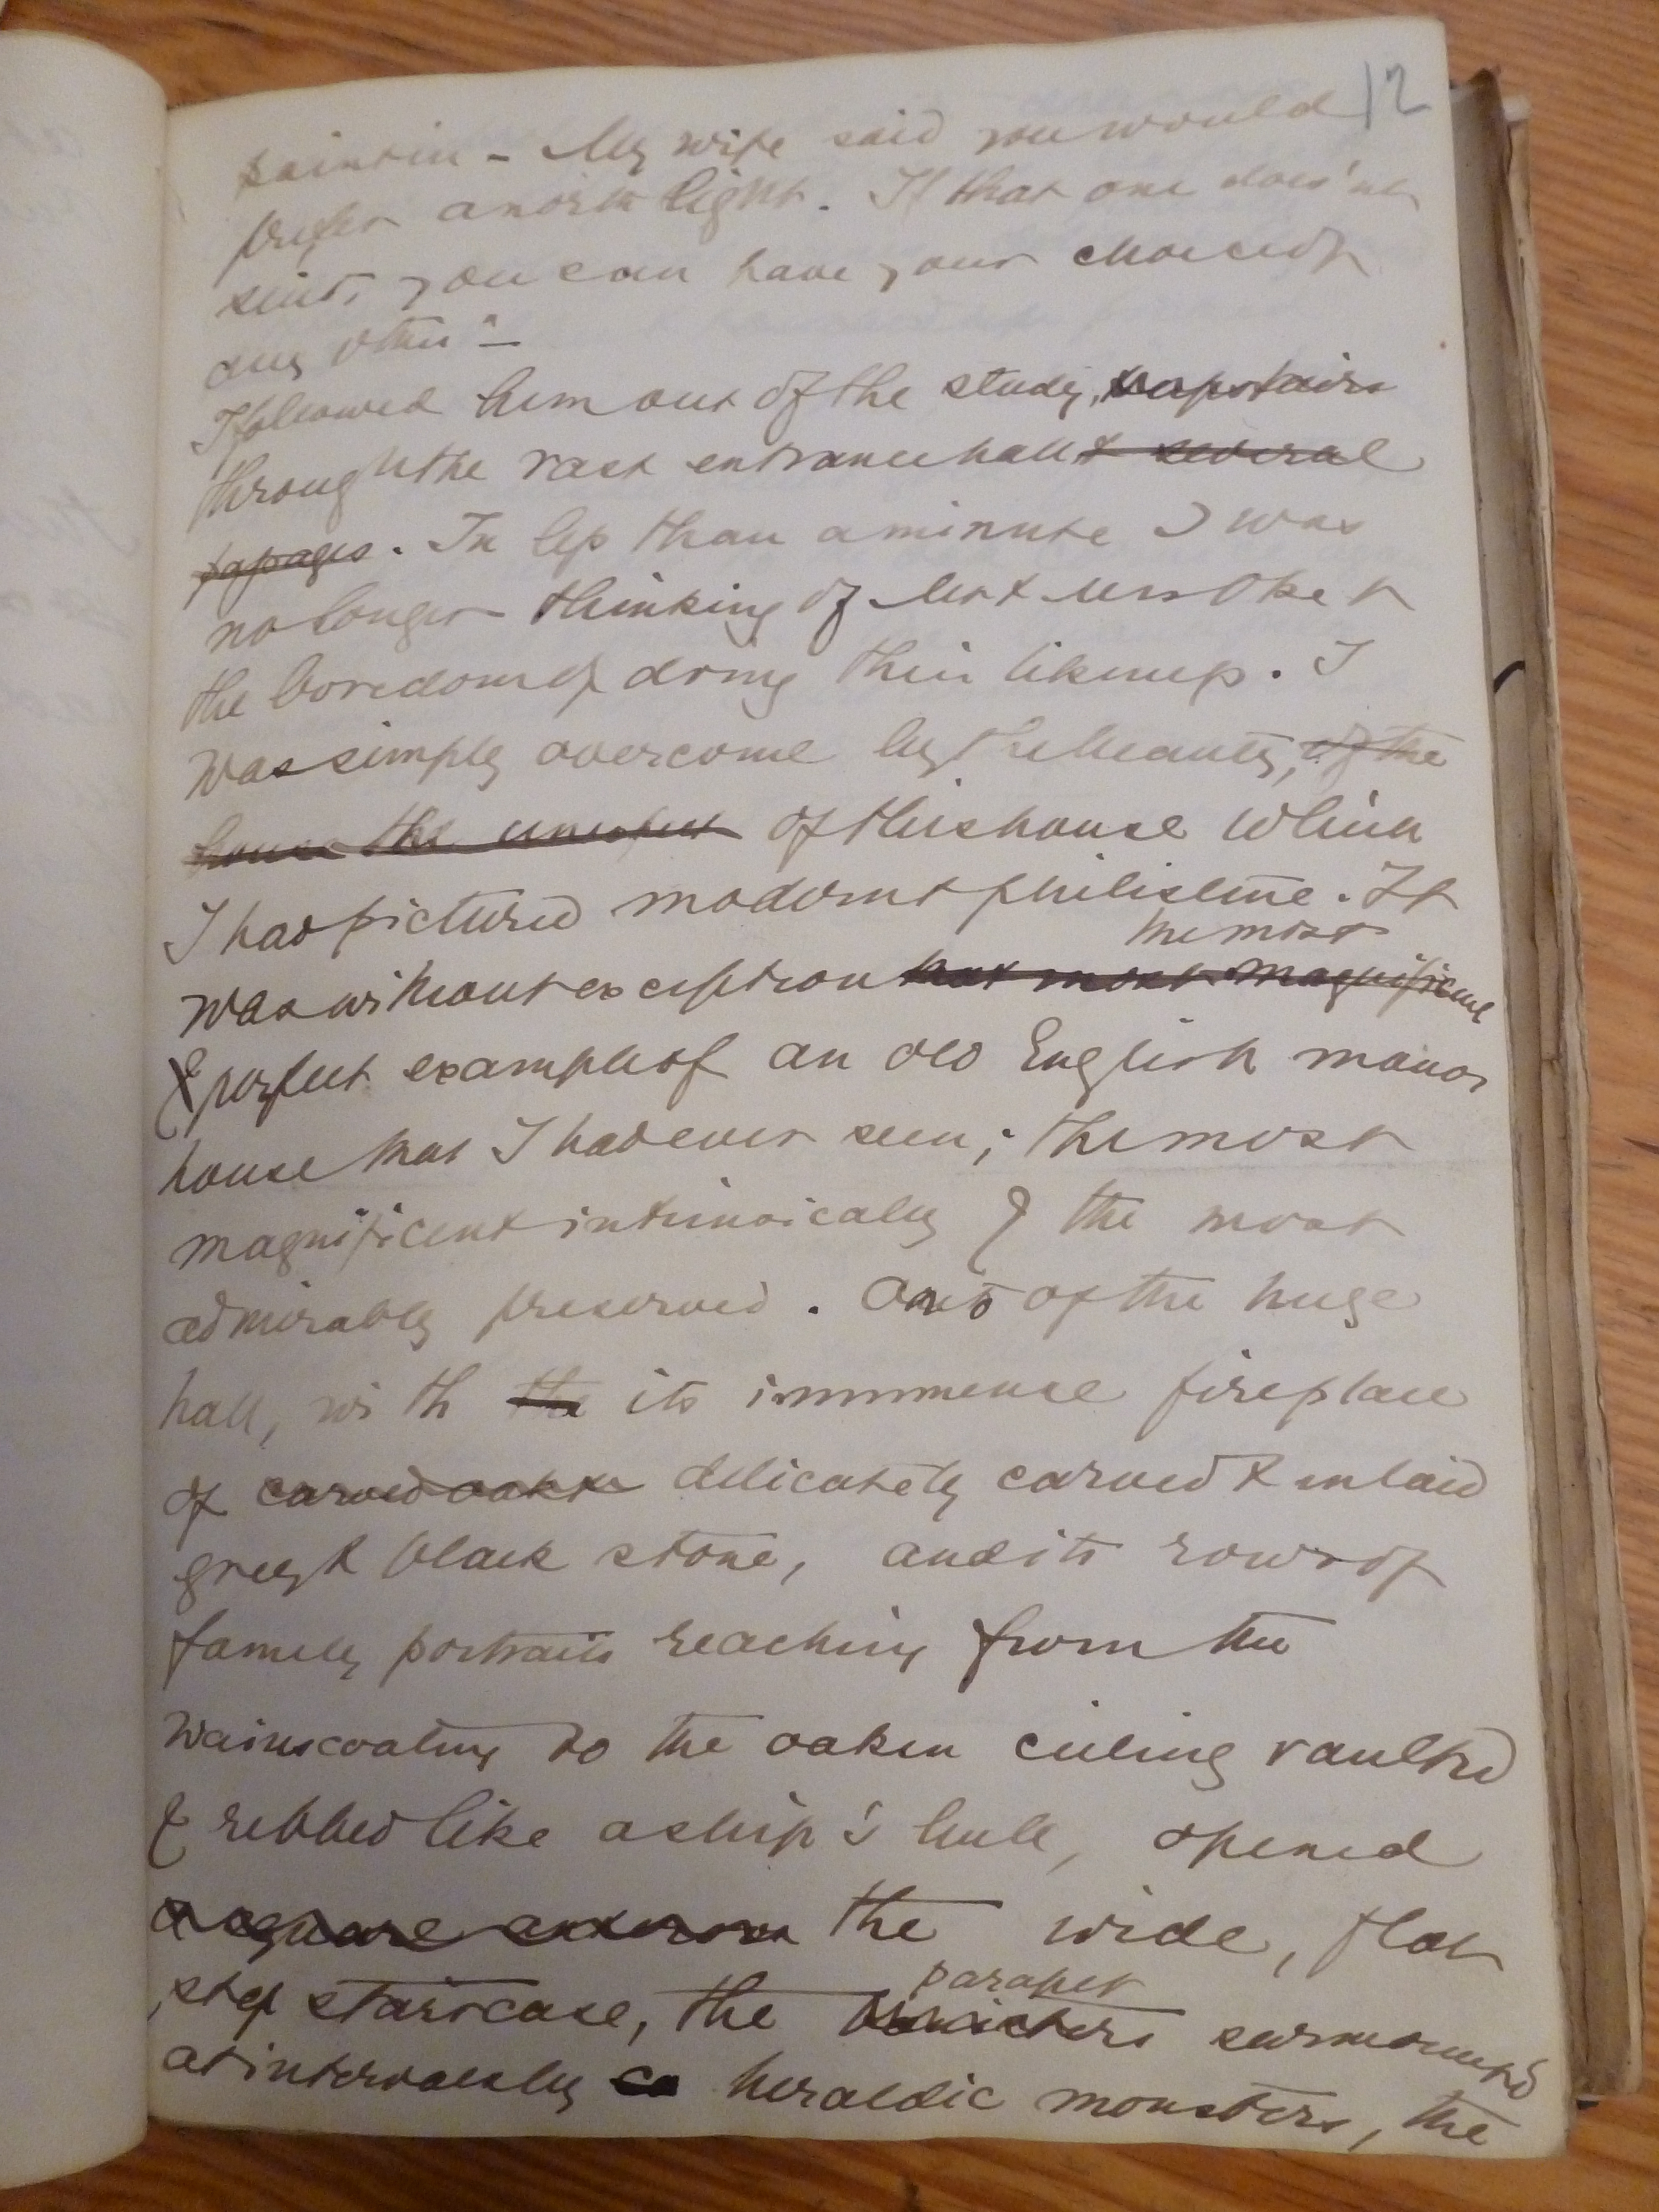 12
paint in - My wife said you would
prefer a north light. If that one does'nt
suit, you can have your choice of
any other" _
I followed him out of the study, upstairs
through the vast entrance hall & several
passages. In less than a minute I was
no longer thinking of Mr & Mrs Oke &
the boredom of doing their likeness. I
was simply overcome by the beauty, of the
house the unexpect of this house which
I had pictured modern & philistine. It
the most
was without exception that most magnificent
& perfect example of an old English manor
house that I had ever seen; the most
magnificent intrinsically & the most
admirably preserved. Out of the huge
hall, with the its immmense fireplace
of carved oak & delicately carved & inlaid
grey & black stone, and its rows of
family portraits reaching from the
wainscoating to the oaken ceiling vaulted
& ribbed like a ship's hull, opened
a square the wide, flat
step staircase, the surmounted
parapet
at intervals by heraldic monsters, the